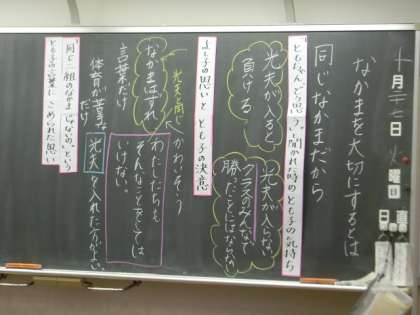 十月二十七日 火曜日
日直
なかまを大切にするとは
同じ、なかまだから
「ともちゃん、どう思う。」と聞かれた時のとも子の気持ち
光夫が入ると
負ける
光夫が入らない
クラスのみんなで
勝ったことにはならない
とも子の思いと とも子の決意
光夫の気持
かわいそう
なかまはずれ
言葉だけ
わたしたちも
そんなことをしては
いけない。
体育が苦手な
だけ
光夫を入れた方がよい。
「同じ一組のなかまじゃないの。」という
とも子の言葉に こめられた思い